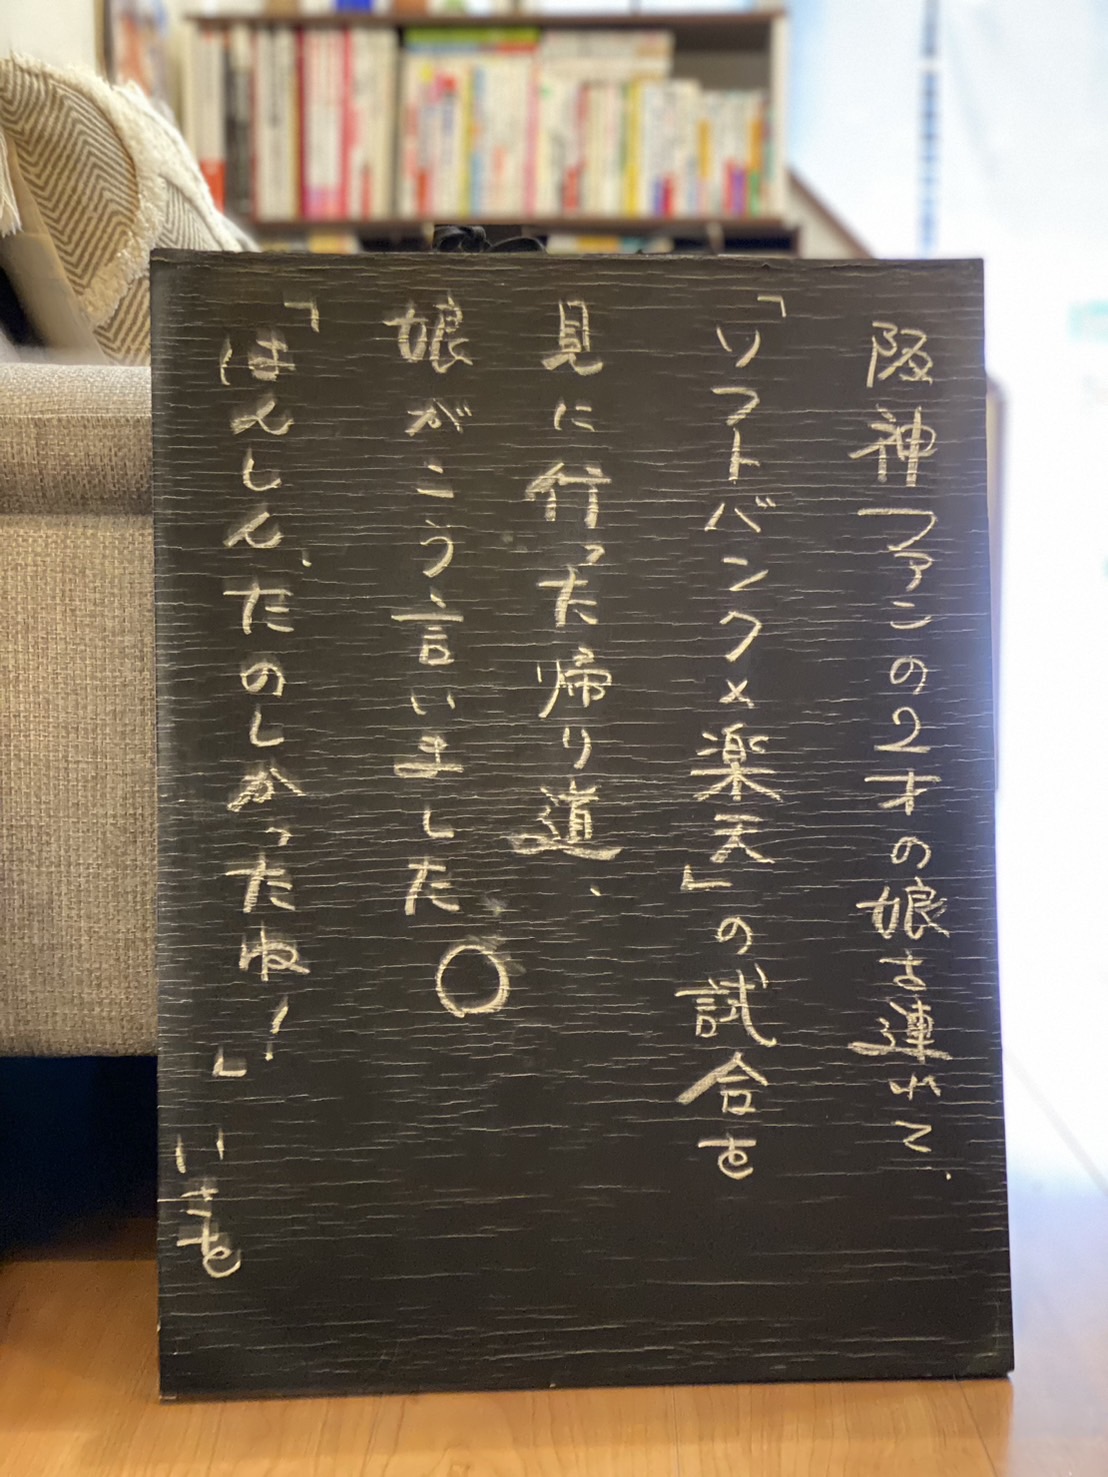 阪神ファンの2才の娘を連れて、
「ソフトバンク×楽天」の試合を
見に行った帰り道、
娘がこう言いました○
「はんしん、たのしかったね!」